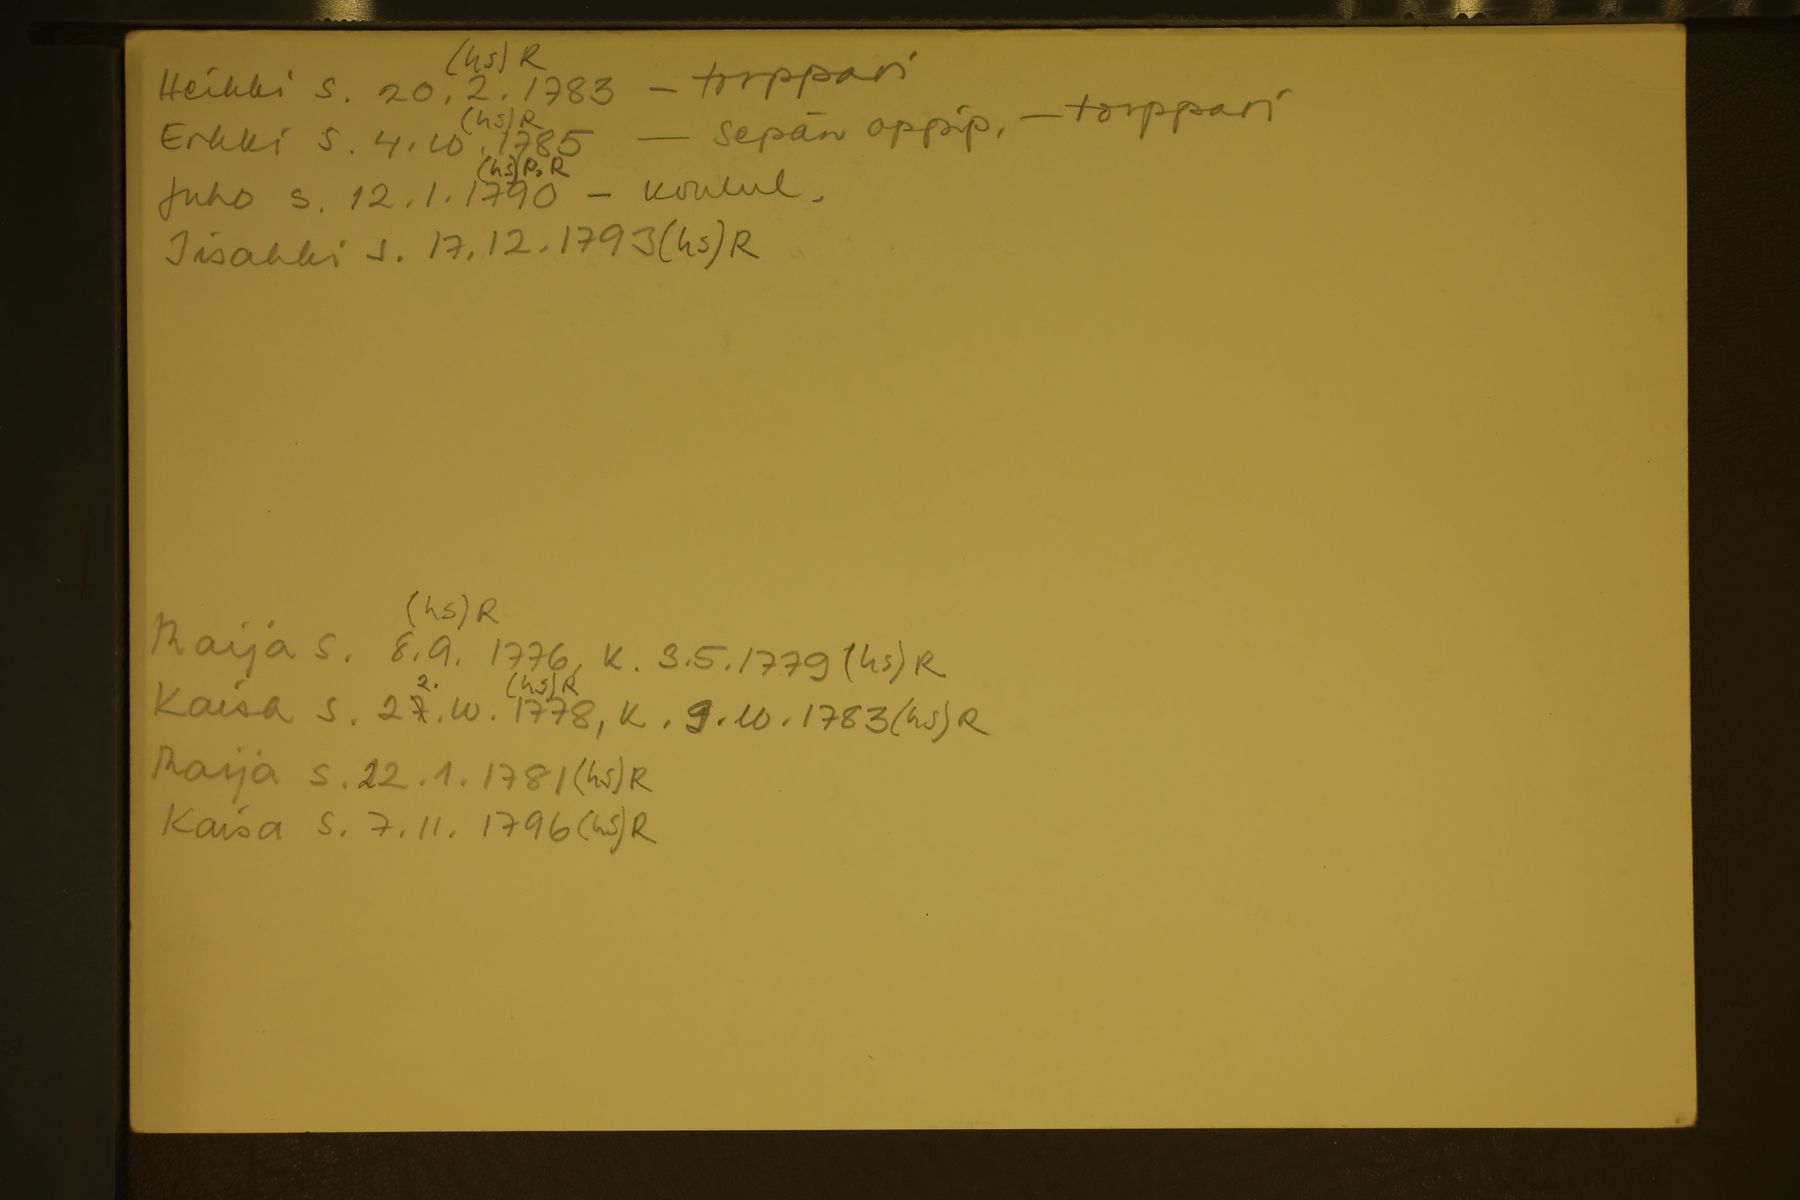 (hs) R
Heikki s. 20.2.1783 – torppari
(hs) R
Erkki s. 4.10.1785 — sepän oppip. – torppari
(hs) P.R
Juho s. 12.1.1790 – koulul.
Iisakki s. 17.12.1793 (hs) R
(hs) R
Maija s. 8.9. 1776, k. 3.5.1779 (hs) R
2. (hs) R
Kaisa s. 27.10. 1778, k. 9.10.1783 (hs) R
Maija s. 22.1.1781 (hs) R
Kaisa s. 7.11. 1796 (hs) R